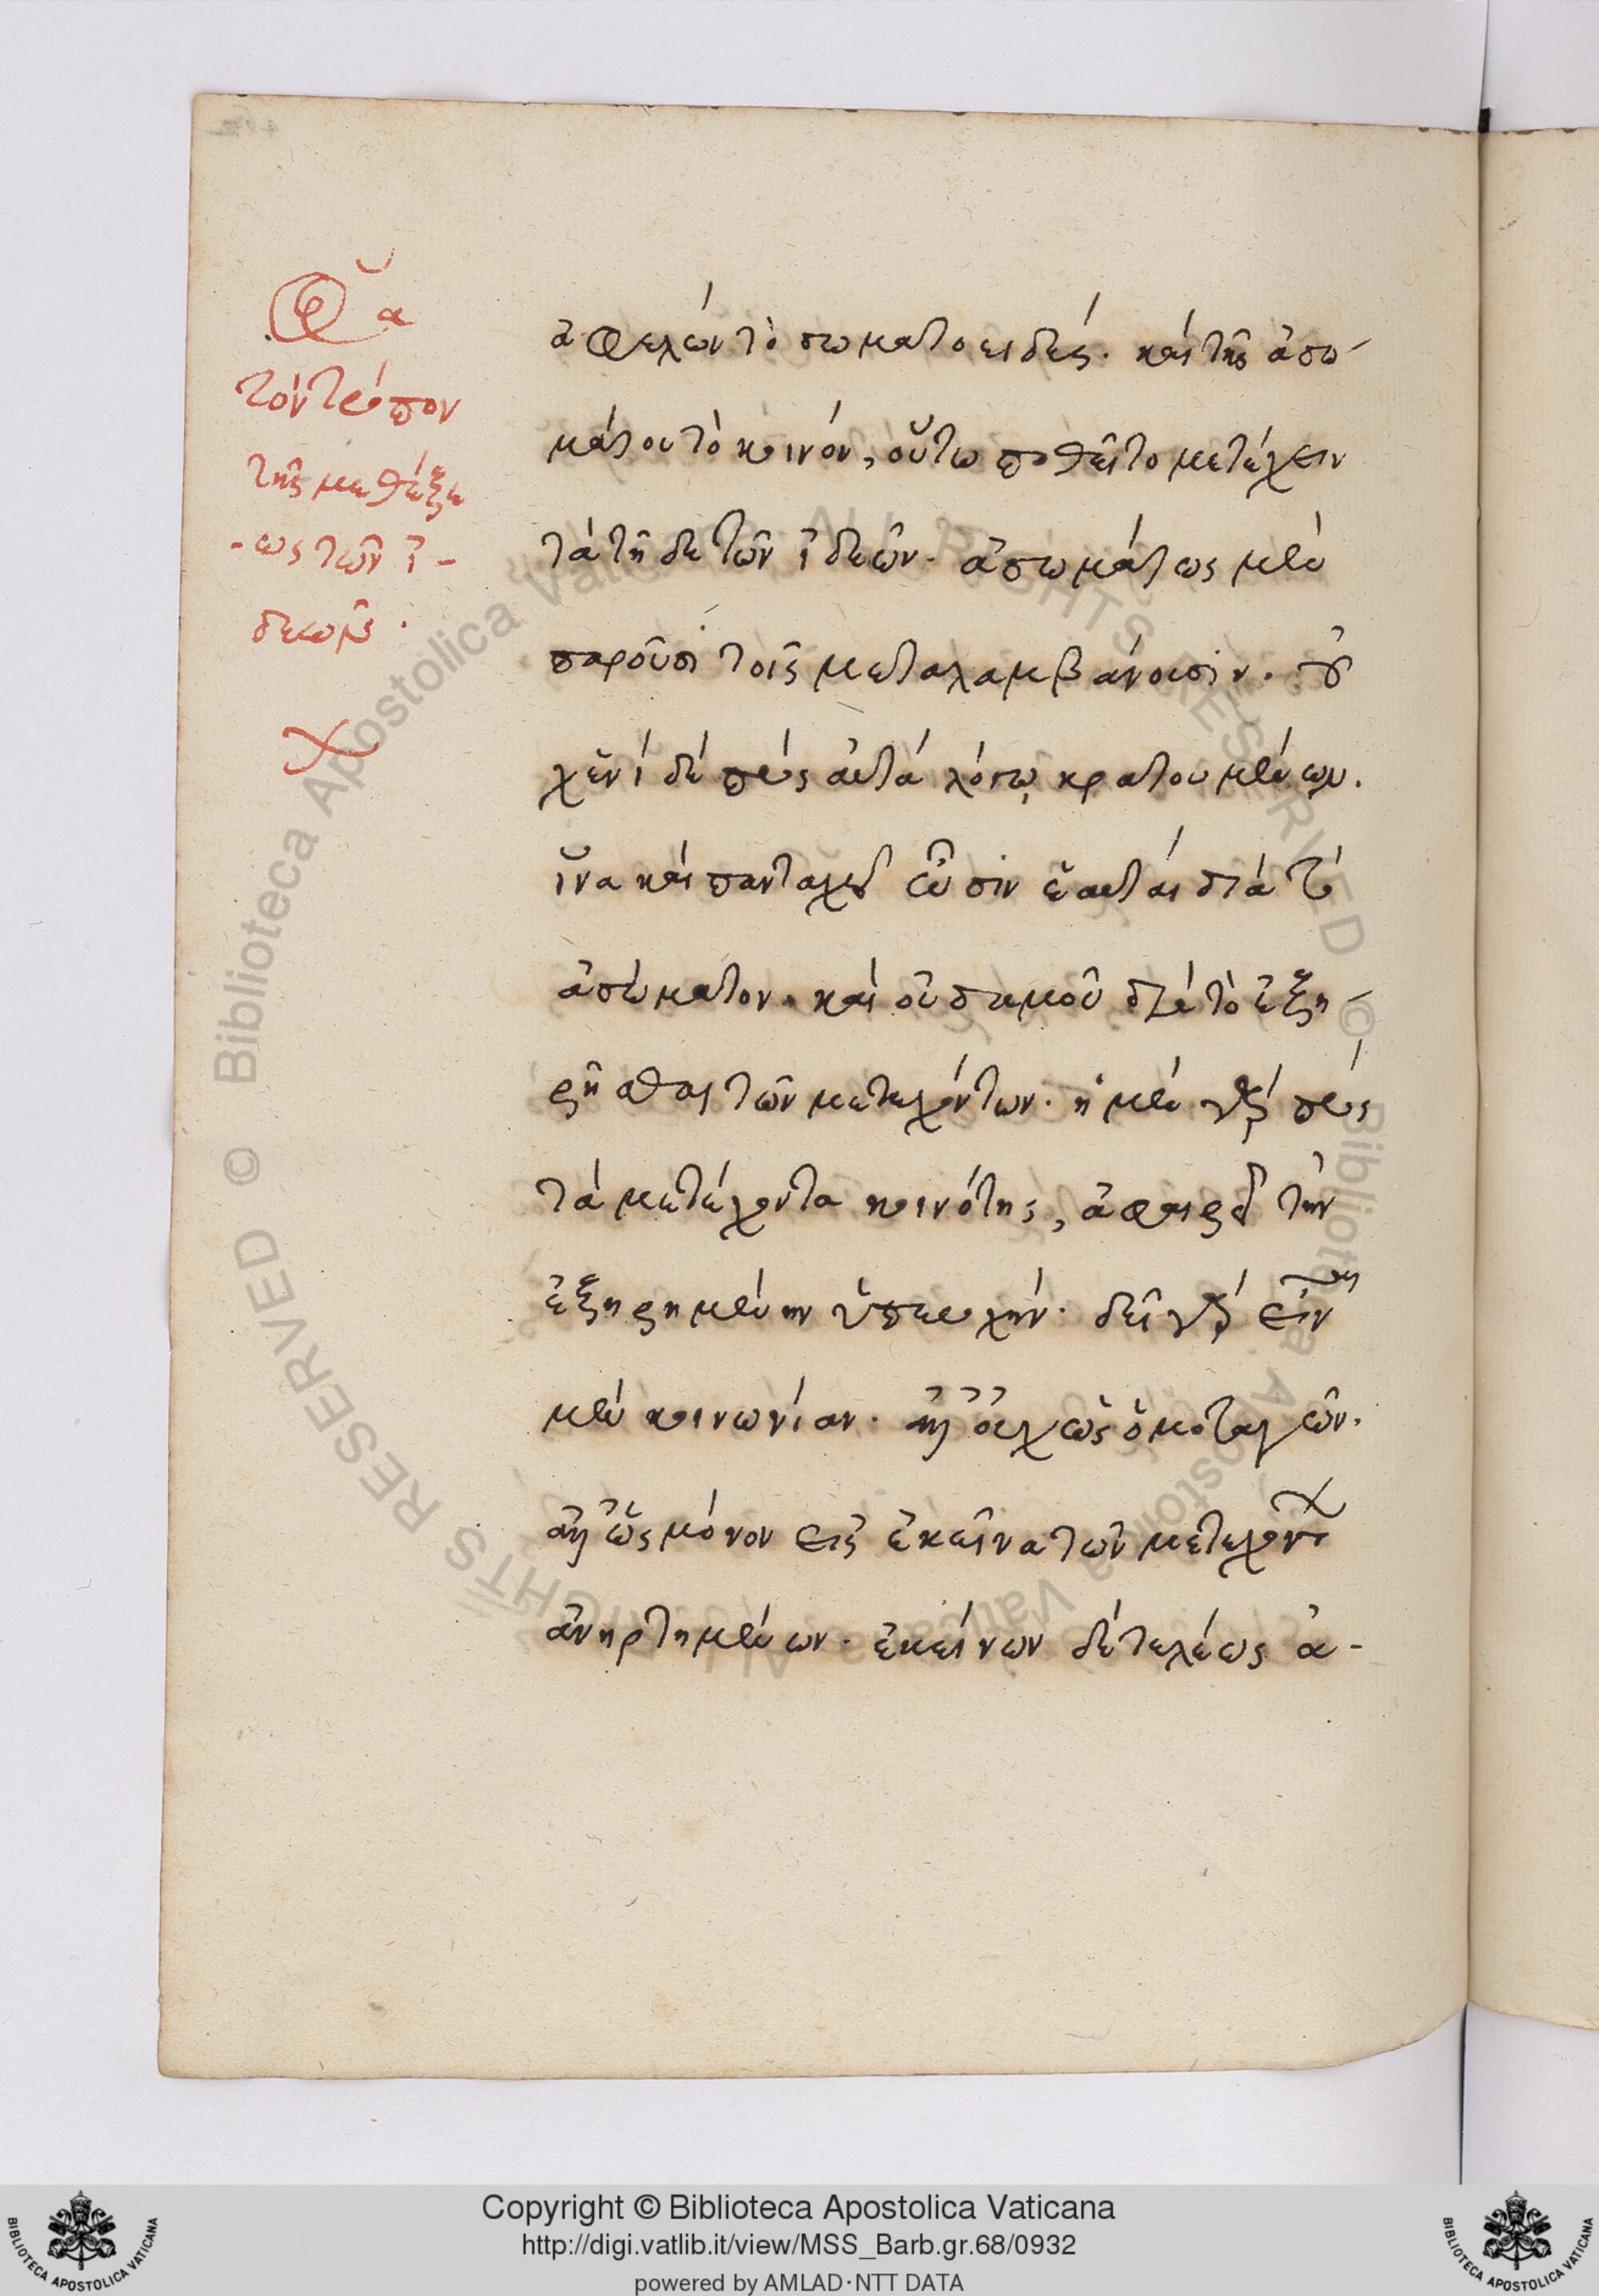 ὅρα
τὸν τρόπον
τῆς μεθέξε
-ως τῶν ἰ-
δεῶν.
ἀφελὼν τὸ σωματοειδές. καὶ τῆς ἀσω-
μάτου τὸ κοινόν, οὕτω ποθεῖτο μετέχειν
τὰ τῇδε τῶν ἰδεῶν. ἀσωμάτως μὲν
παροῦσι τοῖς μεταλαμβάνουσιν. οὐ
χενὶ δὲ πρὸς αὐτὰ λόγῳ κρατουμένων.
ἵνα καὶ πανταχοῦ ὦσιν ἑαυταὶ διὰ τὸ
ἀσώματον. καὶ οὐδαμοῦ διὰ τὸ ἐξῃ-
ρῆσθαι τῶν μετεχόντων. ἡ μὲν γὰρ πρὸς
τὰ μετέχοντα κοινότης, ἀφαιρεῖ τὴν
ἐξῃρημένην ὑπεροχήν. δεῖ γὰρ εἶναι
μὲν κοινωνίαν. ἀλλ' οὐχ ὡς ὁμοταγῶν.
ἀλλ' ὡς μόνον εἰς ἐκεῖνα τῶν μετεχόντων
ἀνηρτημένων. ἐκείνων δὲ τελέως ἀ-
Copyright © Biblioteca Apostolica Vaticana
http://digi.vatlib.it/view/MSS_Barb.gr.68/0932
powered by AMLAD·NTT DATA
© Biblioteca Apostolica Vaticana ALL RIGHTS RESERVED
© Biblioteca Apostolica Vaticana ALL RIGHTS RESERVED
BIBLIOTECA APOSTOLICA VATICANA
BIBLIOTECA APOSTOLICA VATICANA